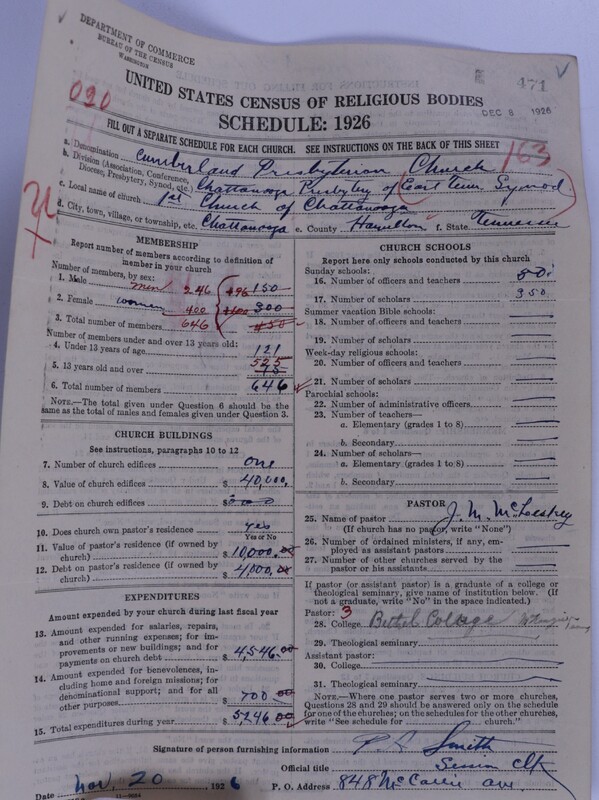 DEPARTMENT OF COMMERCE
BUREAU OF THE CENSUS
WASHINGTON
471
DEC 8 1926
UNITED STATES CENSUS OF RELIGIOUS BODIES
SCHEDULE: 1926
020
FILL OUT A SEPARATE SCHEDULE FOR EACH CHURCH. SEE INSTRUCTIONS ON THE BACK OF THIS SHEET
163
a. Denomination Cumberland Presbyterian Church
b. Division (Association, Conference, Diocese, Presbytery, Synod, etc.) Chattanooga Presbytery of (East Tenn. Synod
c. Local name of church 1st Church of Chattanooga
d. City, town, village, or township, etc. Chattanooga e. County Hamilton f. State Tennessee
MEMBERSHIP
Report number of members according to definition of
member in your church
Number of members, by sex:
1. Male men 246 196 150
2. Female women 400 300
3. Total number of members 646 450
Number of members under and over 13 years old:
4. Under 13 years of age 121
5. 13 years old and over 525
6. Total number of members 646
NOTE.—The total given under Question 6 should be the
same as the total of males and females given under Question 3.
CHURCH BUILDINGS
See instructions, paragraphs 10 to 12
7. Number of church edifices one
8. Value of church edifices $ 40,000.
9. Debt on church edifices $
10. Does church own pastor's residence yes
Yes or No
11. Value of pastor's residence (if owned by
church) $ 10,000.00
12. Debt on pastor's residence (if owned by
church) $ 4,000.00
EXPENDITURES
Amount expended by your church during last fiscal year
13. Amount expended for salaries, repairs,
and other running expenses; for im-
provements or new buildings; and for
payments on church debt $ 4,546.00
14. Amount expended for benevolences, in-
cluding home and foreign missions; for
denominational support; and for all
other purposes $ 700 00
15. Total expenditures during year $ 5246 00
CHURCH SCHOOLS
Report here only schools conducted by this church
Sunday schools:
16. Number of officers and teachers 50
17. Number of scholars 350
Summer vacation Bible schools:
18. Number of officers and teachers
19. Number of scholars
Week-day religious schools:
20. Number of officers and teachers
21. Number of scholars
Parochial schools:
22. Number of administrative officers
23. Number of teachers—
a. Elementary (grades 1 to 8)
b. Secondary
24. Number of scholars—
a. Elementary (grades 1 to 8)
b. Secondary
PASTOR
25. Name of pastor J. M.
(If church has no pastor, write "None")
26. Number of ordained ministers, if any, em-
ployed as assistant pastors
27. Number of other churches served by the
pastor or his assistants
If pastor (or assistant pastor) is a graduate of a college or
theological seminary, give name of institution below. (If
not a graduate, write "No" in the space indicated.)
Pastor: 3
28. College Bethel College
29. Theological seminary
Assistant pastor:
30. College
31. Theological seminary
NOTE.—Where one pastor serves two or more churches,
Questions 28 and 29 should be answered only on the schedule
for one of the churches; on the schedules for the other churches,
write "See schedule for church."
Signature of person furnishing information Smith
Official title Session Clk
Date Nov. 20 1926 P. O. Address 848 McCallie Ave.